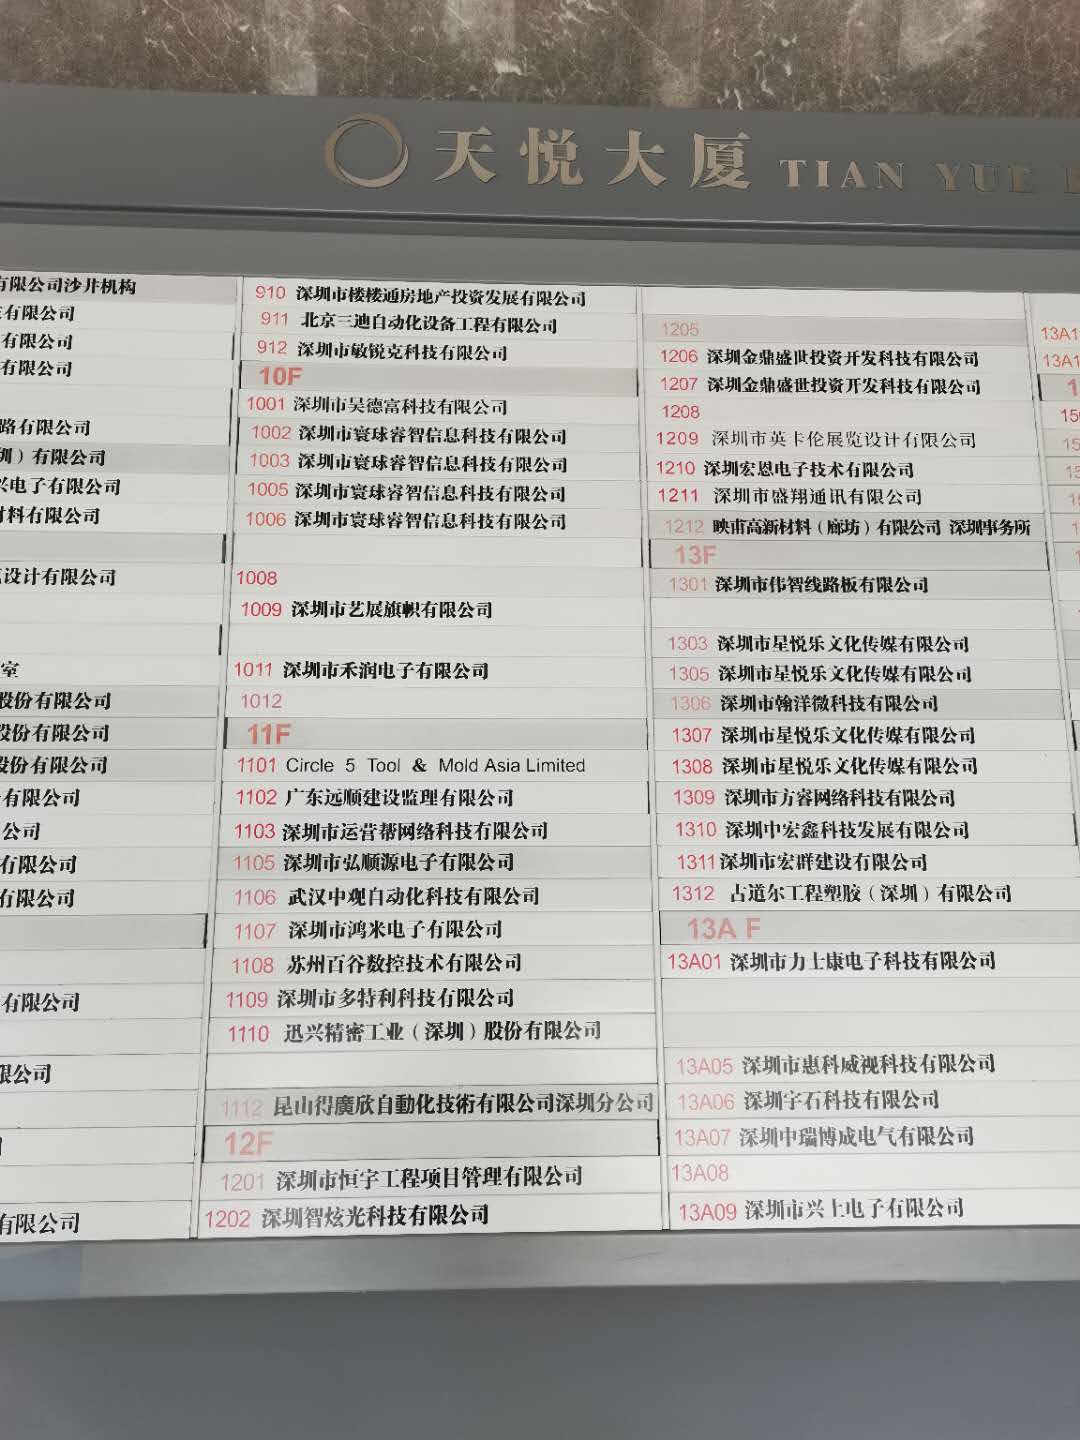 天悦大厦 TIAN YUE
有限公司沙井机构
有限公司
有限公司
有限公司
路有限公司
圳）有限公司
兴电子有限公司
材料有限公司
设计有限公司
室
股份有限公司
股份有限公司
股份有限公司
有限公司
公司
有限公司
有限公司
有限公司
限公司
有限公司
910 深圳市楼楼通房地产投资发展有限公司
911 北京三迪自动化设备工程有限公司
912 深圳市敏锐克科技有限公司
10F
1001 深圳市吴德富科技有限公司
1002 深圳市寰球睿智信息科技有限公司
1003 深圳市寰球睿智信息科技有限公司
1005 深圳市寰球睿智信息科技有限公司
1006 深圳市寰球睿智信息科技有限公司
1008
1009 深圳市艺展旗帜有限公司
1011 深圳市禾润电子有限公司
1012
11F
1101 Circle 5 Tool & Mold Asia Limited
1102 广东远顺建设监理有限公司
1103 深圳市运营帮网络科技有限公司
1105 深圳市弘顺源电子有限公司
1106 武汉中观自动化科技有限公司
1107 深圳市鸿米电子有限公司
1108 苏州百谷数控技术有限公司
1109 深圳市多特利科技有限公司
1110 迅兴精密工业（深圳）股份有限公司
1112 昆山得廣欣自動化技術有限公司深圳分公司
12F
1201 深圳市恒宇工程项目管理有限公司
1202 深圳智炫光科技有限公司
1205
1206 深圳金鼎盛世投资开发科技有限公司
1207 深圳金鼎盛世投资开发科技有限公司
1208
1209 深圳市英卡伦展览设计有限公司
1210 深圳宏恩电子技术有限公司
1211 深圳市盛翔通讯有限公司
1212 映甫高新材料（廊坊）有限公司 深圳事务所
13F
1301 深圳市伟智线路板有限公司
1303 深圳市星悦乐文化传媒有限公司
1305 深圳市星悦乐文化传媒有限公司
1306 深圳市翰洋微科技有限公司
1307 深圳市星悦乐文化传媒有限公司
1308 深圳市星悦乐文化传媒有限公司
1309 深圳市方睿网络科技有限公司
1310 深圳中宏鑫科技发展有限公司
1311 深圳市宏群建设有限公司
1312 占道尔工程塑胶（深圳）有限公司
13A F
13A01 深圳市力士康电子科技有限公司
13A05 深圳市惠科威视科技有限公司
13A06 深圳宇石科技有限公司
13A07 深圳中瑞博成电气有限公司
13A08
13A09 深圳市兴上电子有限公司
13A1
13A1